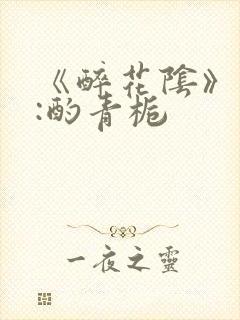 《醉花陰》
:酌青栀
一夜之靈